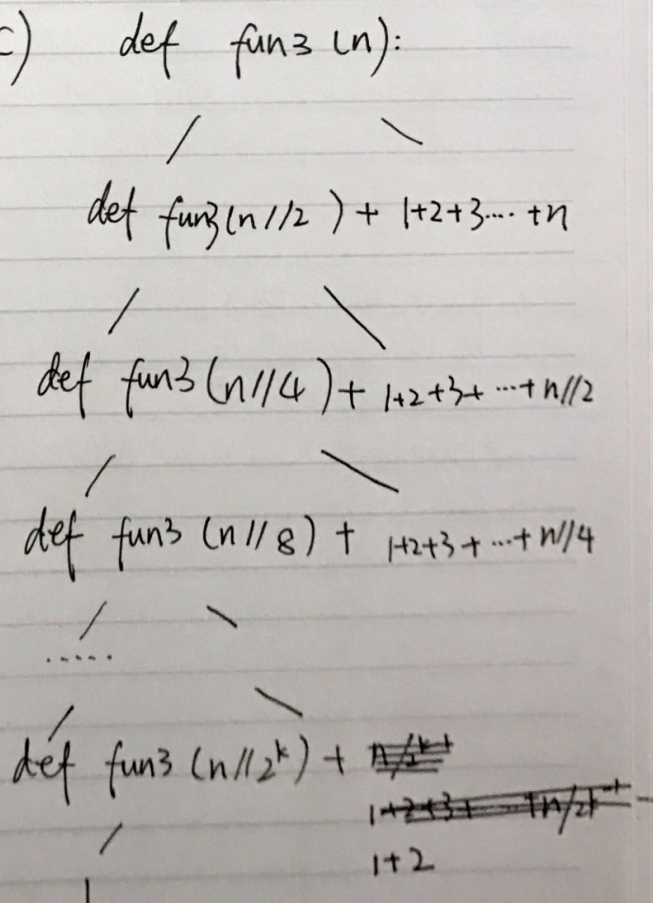 c) def fun3 (n):
def fun3(n//2 ) + 1+2+3.... +n
def fun3 (n//4 ) + 1+2+3+ ...+ n//2
def fun3 (n//8) + 1+2+3 + ...+ n//4
.....
def fun3 (n//2^k) +
1+2